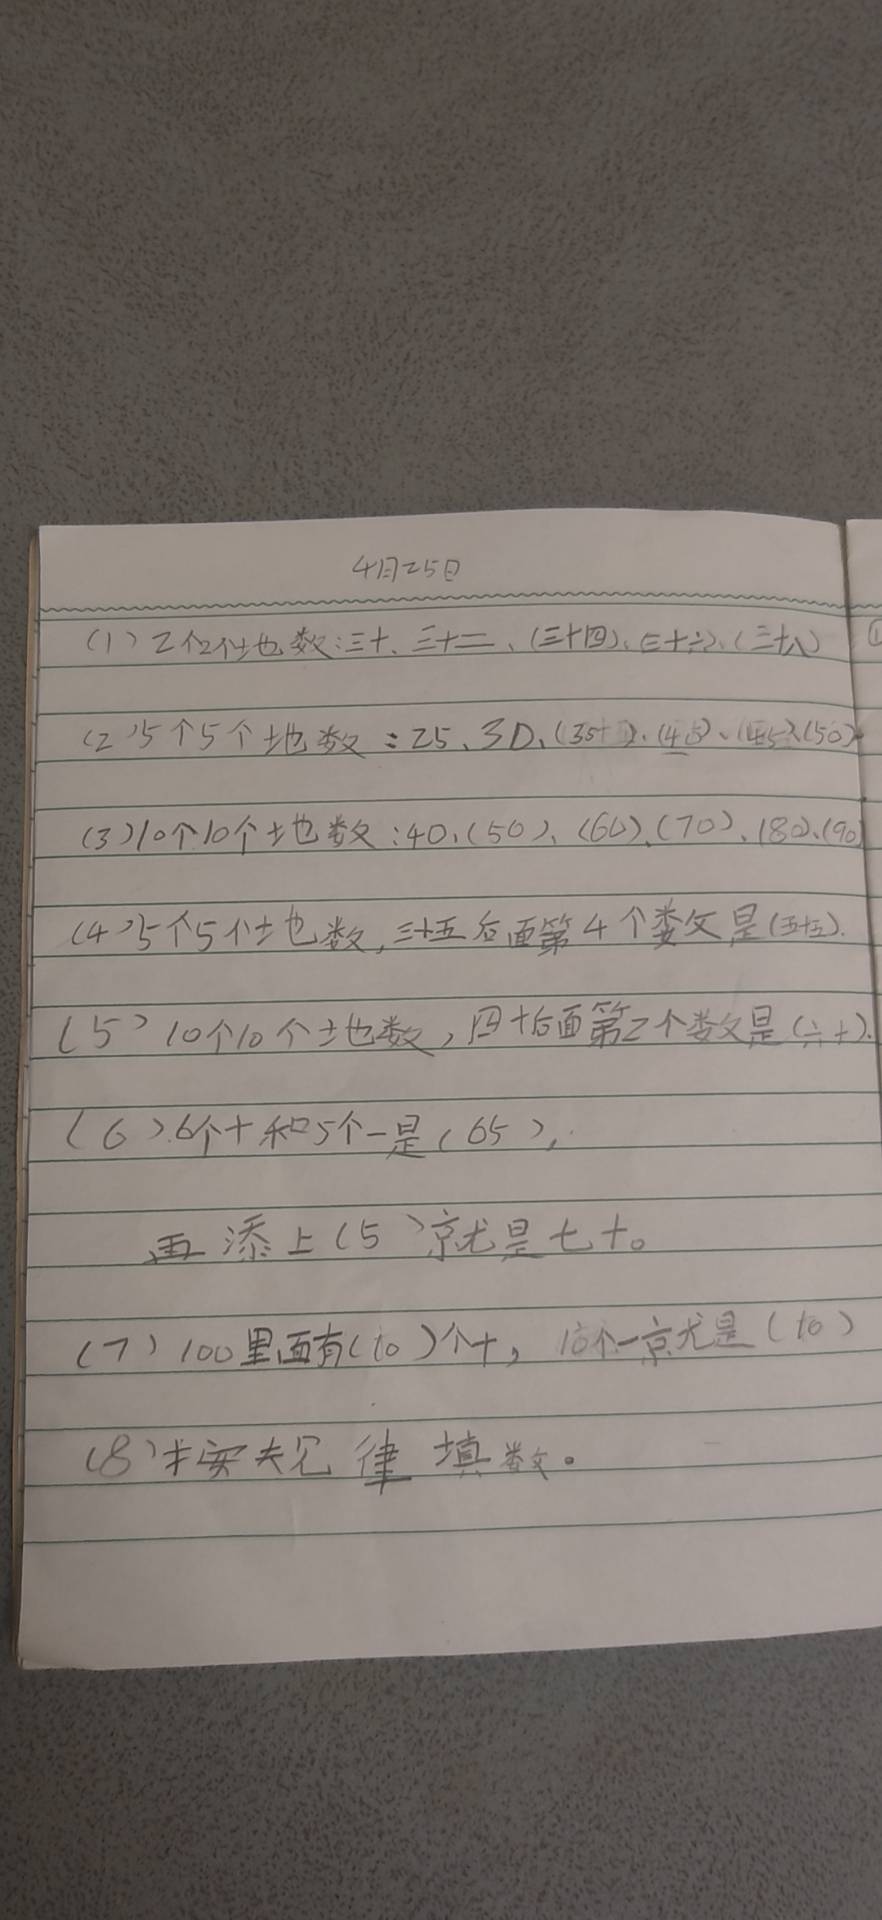 4月25日
(1) 2个2个地数:三十、三十二、(三十四)、(三十六)、(三十八)
(2) 5个5个地数:25、30、(35)、(40)、(45)、(50)
(3) 10个10个地数:40、(50)、(60)、(70)、(80)、(90)
(4) 5个5个地数,三十五后面第4个数是(五十五).
(5) 10个10个地数,四十后面第2个数是(六十).
(6) 6个十和5个一是(65),
再添上(5)就是七十。
(7) 100里面有(10)个十, 10个一就是(10)
(8) 按规律填数。